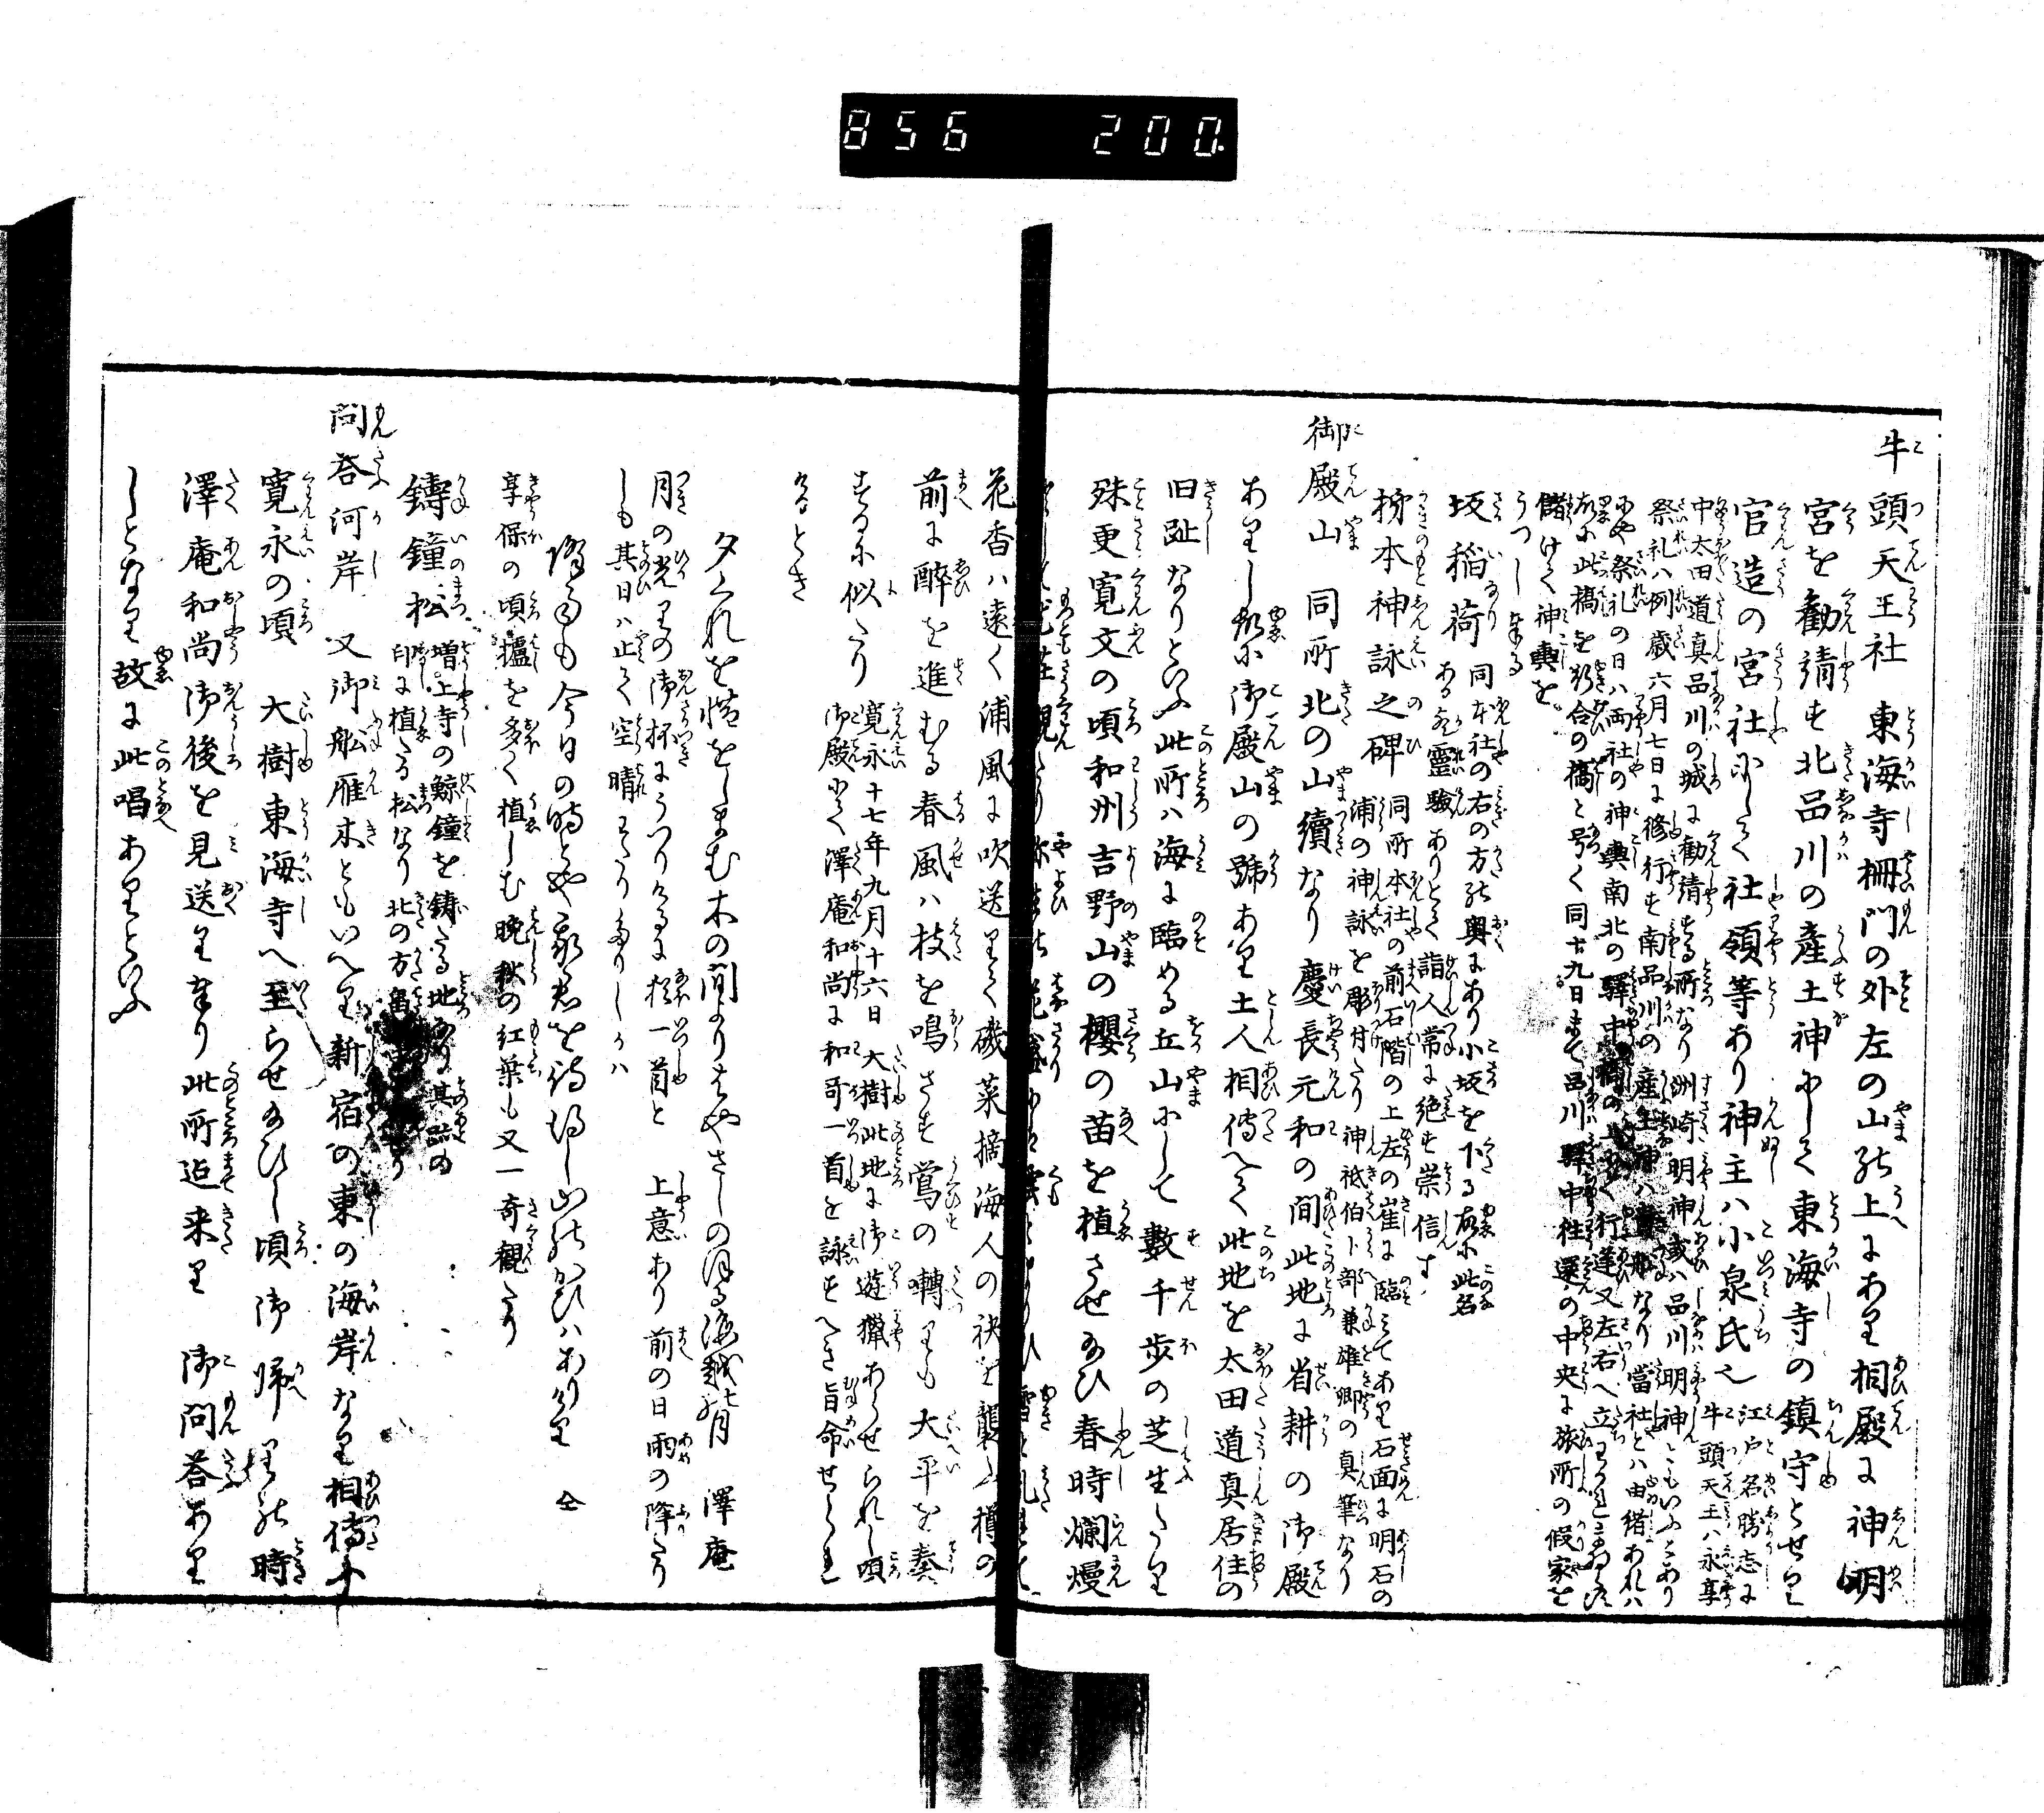 856 200.
牛頭天王社 東海寺柵門の外左の山の上にあり相殿に神明
宮を勧請す北品川の産土神にして東海寺の鎮守とせり
官造の宮社にして社領等あり神主ハ小泉氏也 江戸名勝志に牛頭天王ハ永享
中太田道真品川の城に勧請する所なり洲崎明神或ハ品川明神ともいふとあり
祭礼ハ例歳六月七日に修行す南品川の産土神ハ貴船なり當社とハ由緒あれハ
にや祭礼の日ハ両社の神輿南北の驛中橋の上にて行逢又左右へ立わかれ
故に此橋を行合の橋と号く同十九日まて品川驛中往還の中央に旅所の假家を
儲けて神輿を
うつし奉る
坂稲荷 同本社の右の方の奥にあり小坂を下る故に此名
ある歟霊験ありとて詣人常に絶す崇信す
榜本神詠之碑 同所本社の前石階の上左の崖に臨みてあり石面に明石の
浦の神詠を彫付たり神祇伯卜部兼雄卿の真筆なり
御殿山 同所北の山續なり慶長元和の間此地に省耕の御殿
ありし故に御殿山の號あり土人相傳へて此地を太田道真居住の
旧趾なりといふ此所ハ海に臨める丘山にして數千歩の芝生たり
殊更寛文の頃和州吉野山の櫻の苗を植させ給ひ春時爛熳
花香ハ遠く浦風に吹送りて磯菜摘海人の袂を襲ふ樽の
前に酔を進むる春風ハ枝を鳴さす鶯の囀りも大平を奏
するに似たり 寛永十七年九月十六日 大樹此地に御遊獵あらせられし頃
御殿にて澤庵和尚に和哥一首を詠すへき旨命せられ
けるとき
夕くれを惜をしまむ木の間よりはやさしのほる海越の月 澤庵
月の光りの御杯にうつりけるに猶一首と 上意あり前の日雨の降たり
しも其日ハ止て空晴わたりたりしかハ
降る雨も今日の時とや我君を待得し山のかひハありけり 仝
享保の頃櫨を多く植しむ晩秋の紅葉も又一奇観たり
鑄鐘松 増上寺の鯨鐘を鋳たる地なり其跡の
印に植たる松なり北の方
問答河岸 又御舩雁木ともいへり新宿の東の海岸なり相傳ふ
寛永の頃 大樹東海寺へ至らせ給ひし頃御帰りの時
澤庵和尚御後を見送り奉り此所迄来り 御問答あり
しとなり故に此唱ありといふ